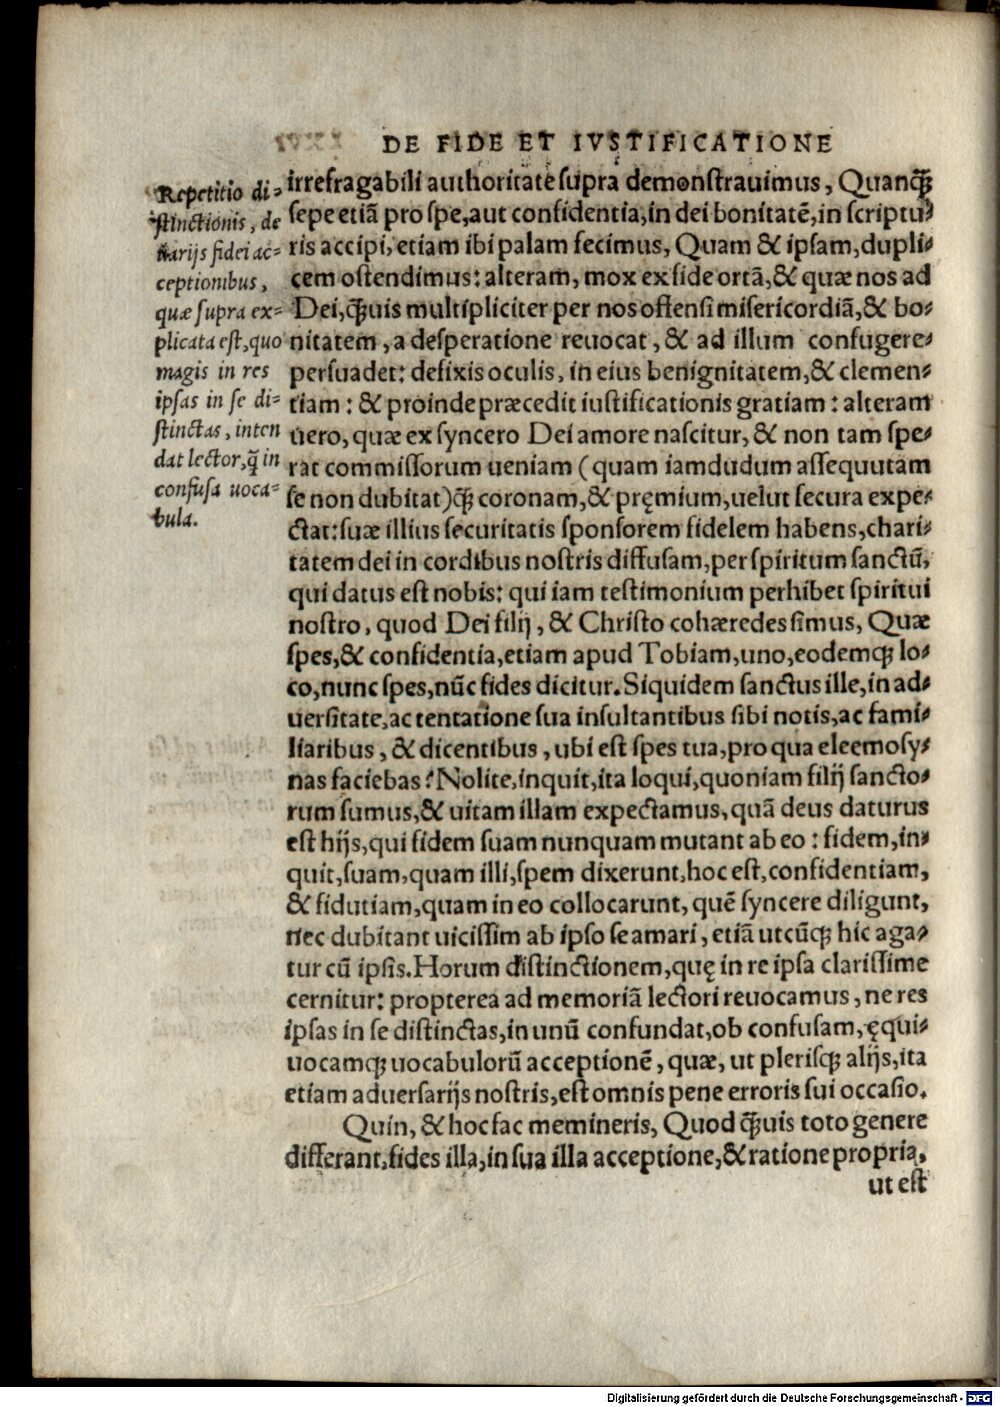 DE FIDE ET IVSTIFICATIONE
Repetitio di⸗
stinctionis, de
uarijs fidei ac⸗
ceptionibus,
quæ supra ex⸗
plicata est, quo
magis in res
ipsas in se di⸗
stinctas, inten
dat lector, q̃ in
confusa uoca⸗
bula.
irrefragabili authoritate supra demonstrauimus, Quanq̃ꝫ
sepe etiã pro spe, aut confidentia, in dei bonitatẽ, in scriptu⸗
ris accipi, etiam ibi palam fecimus, Quam & ipsam, dupli⸗
cem ostendimus: alteram, mox ex fide ortã, & quæ nos ad
Dei, q̃ꝫuis multipliciter per nos offensi misericordiã, & bo⸗
nitatem, a desperatione reuocat, & ad illum confugere⸗
persuadet: defixis oculis, in eius benignitatem, & clemen⸗
tiam: & proinde præcedit iustificationis gratiam: alteram
uero, quæ ex syncero Dei amore nascitur, & non tam spe⸗
rat commissorum ueniam (quam iamdudum assequutam
se non dubitat) q̃ꝫ coronam, & pręmium, uelut secura expe⸗
ctat: suæ illius securitatis sponsorem fidelem habens, chari⸗
tatem dei in cordibus nostris diffusam, per spiritum sanctũ,
qui datus est nobis: qui iam testimonium perhibet spiritui
nostro, quod Dei filij, & Christo cohæredes simus, Quæ
spes, & confidentia, etiam apud Tobiam, uno, eodemqꝫ lo⸗
co, nunc spes, nũc fides dicitur. Siquidem sanctus ille, in ad⸗
uersitate, ac tentatione sua insultantibus sibi notis, ac fami⸗
liaribus, & dicentibus, ubi est spes tua, pro qua eleemosy⸗
nas faciebas? Nolite, inquit, ita loqui, quoniam filij sancto⸗
rum sumus, & uitam illam expectamus, quã deus daturus
est hijs, qui fidem suam nunquam mutant ab eo: fidem, in⸗
quit, suam, quam illi, spem dixerunt, hoc est, confidentiam,
& fidutiam, quam in eo collocarunt, quẽ syncere diligunt,
nec dubitant uicissim ab ipso se amari, etiã utcũqꝫ hic aga⸗
tur cũ ipsis. Horum distinctionem, quę in re ipsa clarissime
cernitur: propterea ad memoriã lectori reuocamus, ne res
ipsas in se distinctas, in unũ confundat, ob confusam, ęqui⸗
uocamqꝫ uocabulorũ acceptionẽ, quæ, ut plerisqꝫ alijs, ita
etiam aduersarijs nostris, est omnis pene erroris sui occasio.
Quin, & hoc fac memineris, Quod q̃ꝫuis toto genere
differant, fides illa, in sua illa acceptione, & ratione propria,
ut est
Digitalisierung gefördert durch die Deutsche Forschungsgemeinschaft - DFG